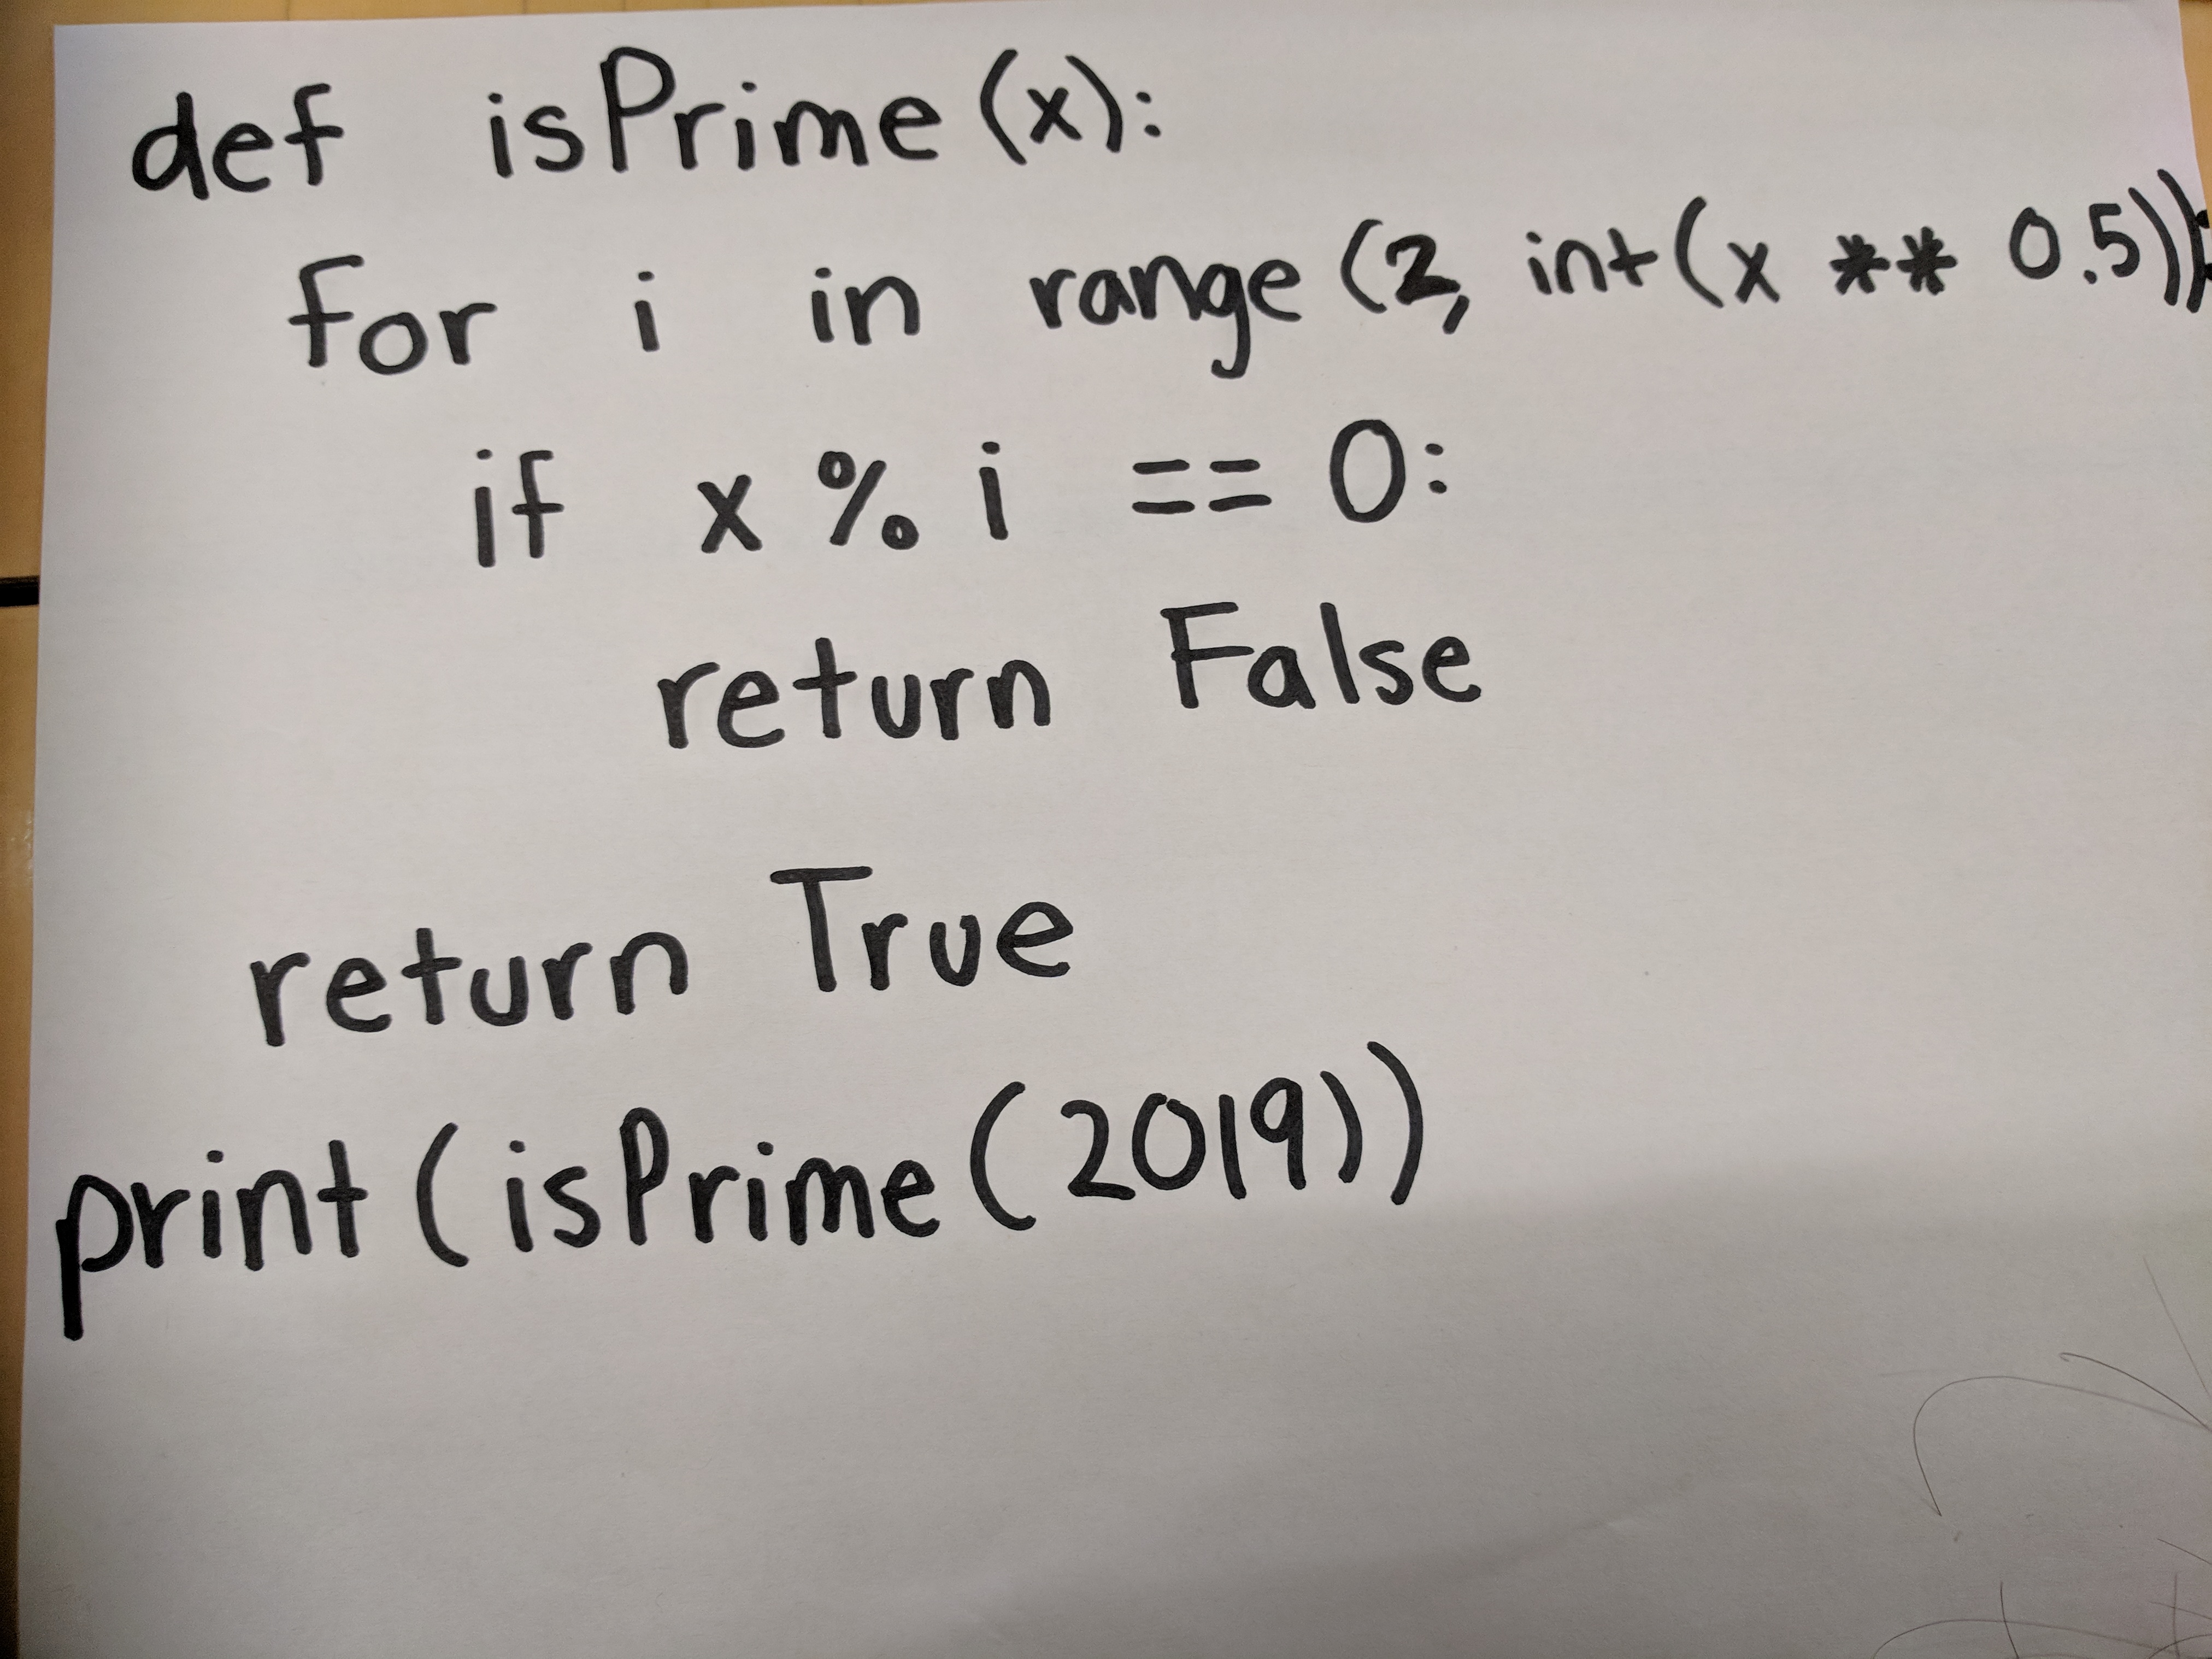 def isPrime(x):
for i in range(2, int(x ** 0.5)):
if x % i == 0:
return False
return True
print(isPrime(2019))